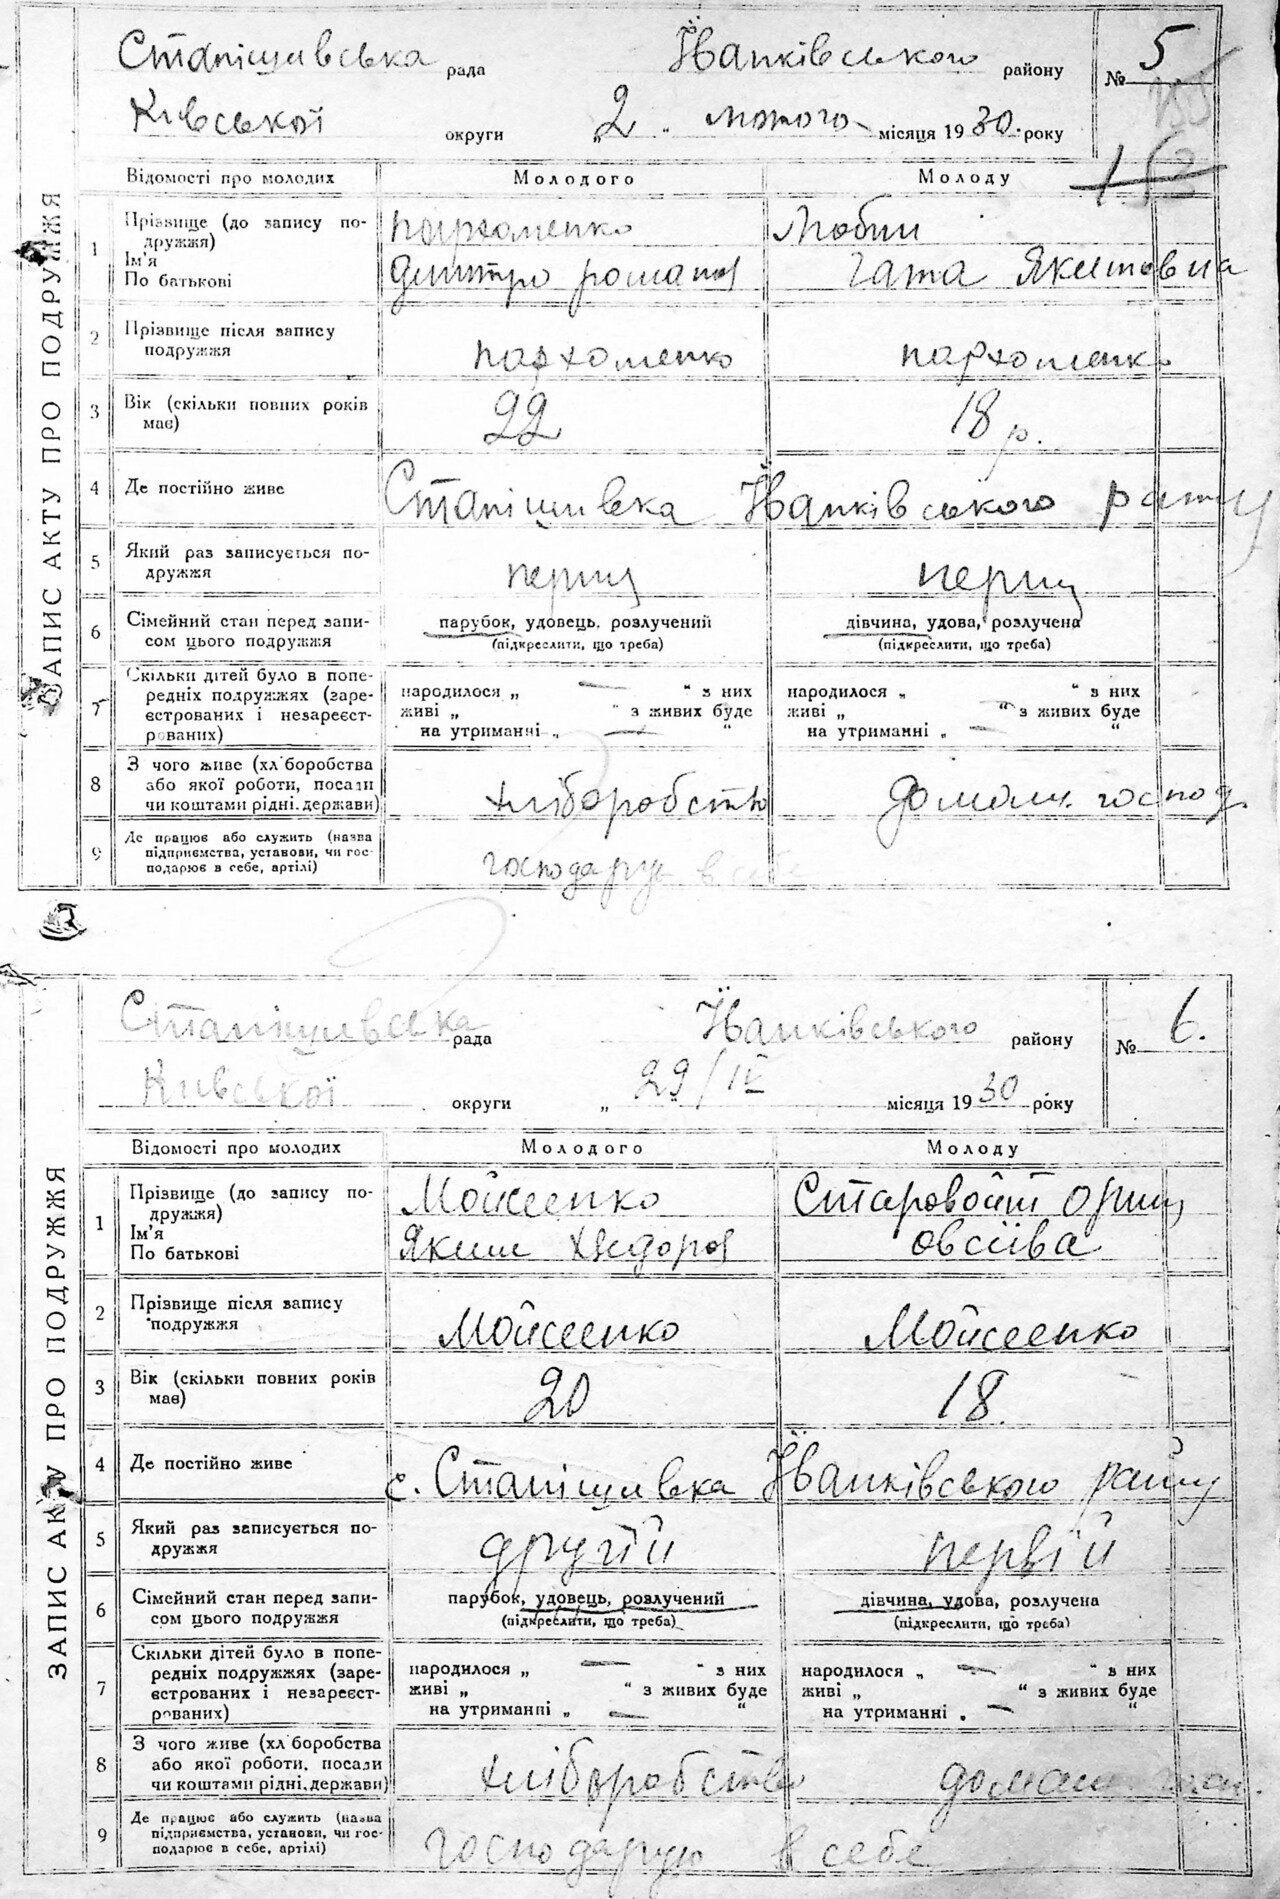 Станіщивська рада Йванківського району № 5
Київської округи „ 2 " лютого місяця 1930. року
ЗАПИС АКТУ ПРО ПОДРУЖЖЯ
Відомості про молодих Молодого Молоду
1 Прізвище (до запису по- Пархоменко Любин
дружжя)
Ім'я Дмитро Роман Гапа Якимовна
По батькові
2 Прізвище після запису
подружжя Пархоменко Пархоменко
3 Вік (скільки повних років 22 18 р.
має)
4 Де постійно живе Станіщивка Йванківського рану
5 Який раз записується по-
дружжя перш перш
6 Сімейний стан перед запи- парубок, удовець, розлучений дівчина, удова, розлучена
сом цього подружжя (підкреслити, що треба) (підкреслити, що треба)
Скільки дітей було в попе-
7 редніх подружжях (заре- народилося „ — " з них народилося „ " з них
єстрованих і незареєст- живі „ " з живих буде живі „ " з живих буде
рованих) на утриманні „ — " на утриманні „ — "
З чого живе (хліборобства
8 або якої роботи, посади хліборобство домашн. господ.
чи коштами рідні, держави)
Де працює або служить (назва
9 підприємства, установи, чи гос- господарує в себе
подарює в себе, артілі)
Станіщивська рада Йванківського району № 6.
Київської округи „ 29/IV місяця 1930 року
ЗАПИС АКТУ ПРО ПОДРУЖЖЯ
Відомості про молодих Молодого Молоду
1 Прізвище (до запису по- Мойсеенко Старовойт Ориш
дружжя)
Ім'я Яким Хведоров Овсіїва
По батькові
2 Прізвище після запису
подружжя Мойсеенко Мойсеенко
3 Вік (скільки повних років 20 18.
має)
4 Де постійно живе с. Станіщивка Йванківського рану
5 Який раз записується по-
дружжя другій первій
6 Сімейний стан перед запи- парубок, удовець, розлучений дівчина, удова, розлучена
сом цього подружжя (підкреслити, що треба) (підкреслити, що треба)
Скільки дітей було в попе-
7 редніх подружжях (заре- народилося „ — " з них народилося „ — " з них
єстрованих і незареєст- живі „ " з живих буде живі „ " з живих буде
рованих) на утриманні „ — " на утриманні „ — "
З чого живе (хліборобства
8 або якої роботи, посади хліборобство
чи коштами рідні, держави)
Де працює або служить (назва
9 підприємства, установи, чи гос- господарую в себе
подарює в себе, артілі)